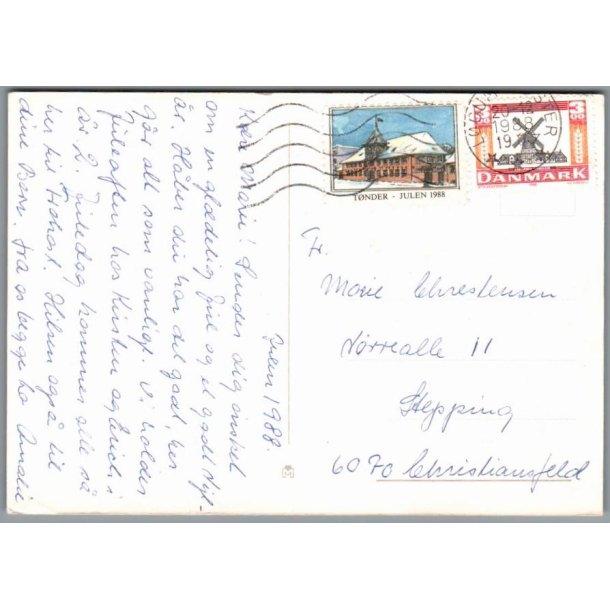 Julen 1988
Kære Marie! Sender dig ønsket
om en glædelig jul og et godt nyt-
år. Håber du har det godt, her
går alt som vanligt. Vi holder
juleaften hos Kirsten og
år, 2 juledag kommer alle så
her til Frokost. Hilsen også til
dine Børn. fra os begge to
TØNDER - JULEN 1988
1988
19
3
DANMARK
Fr.
Marie Christensen
Nørrealle 11
Stepping
6070 Christiansfeld